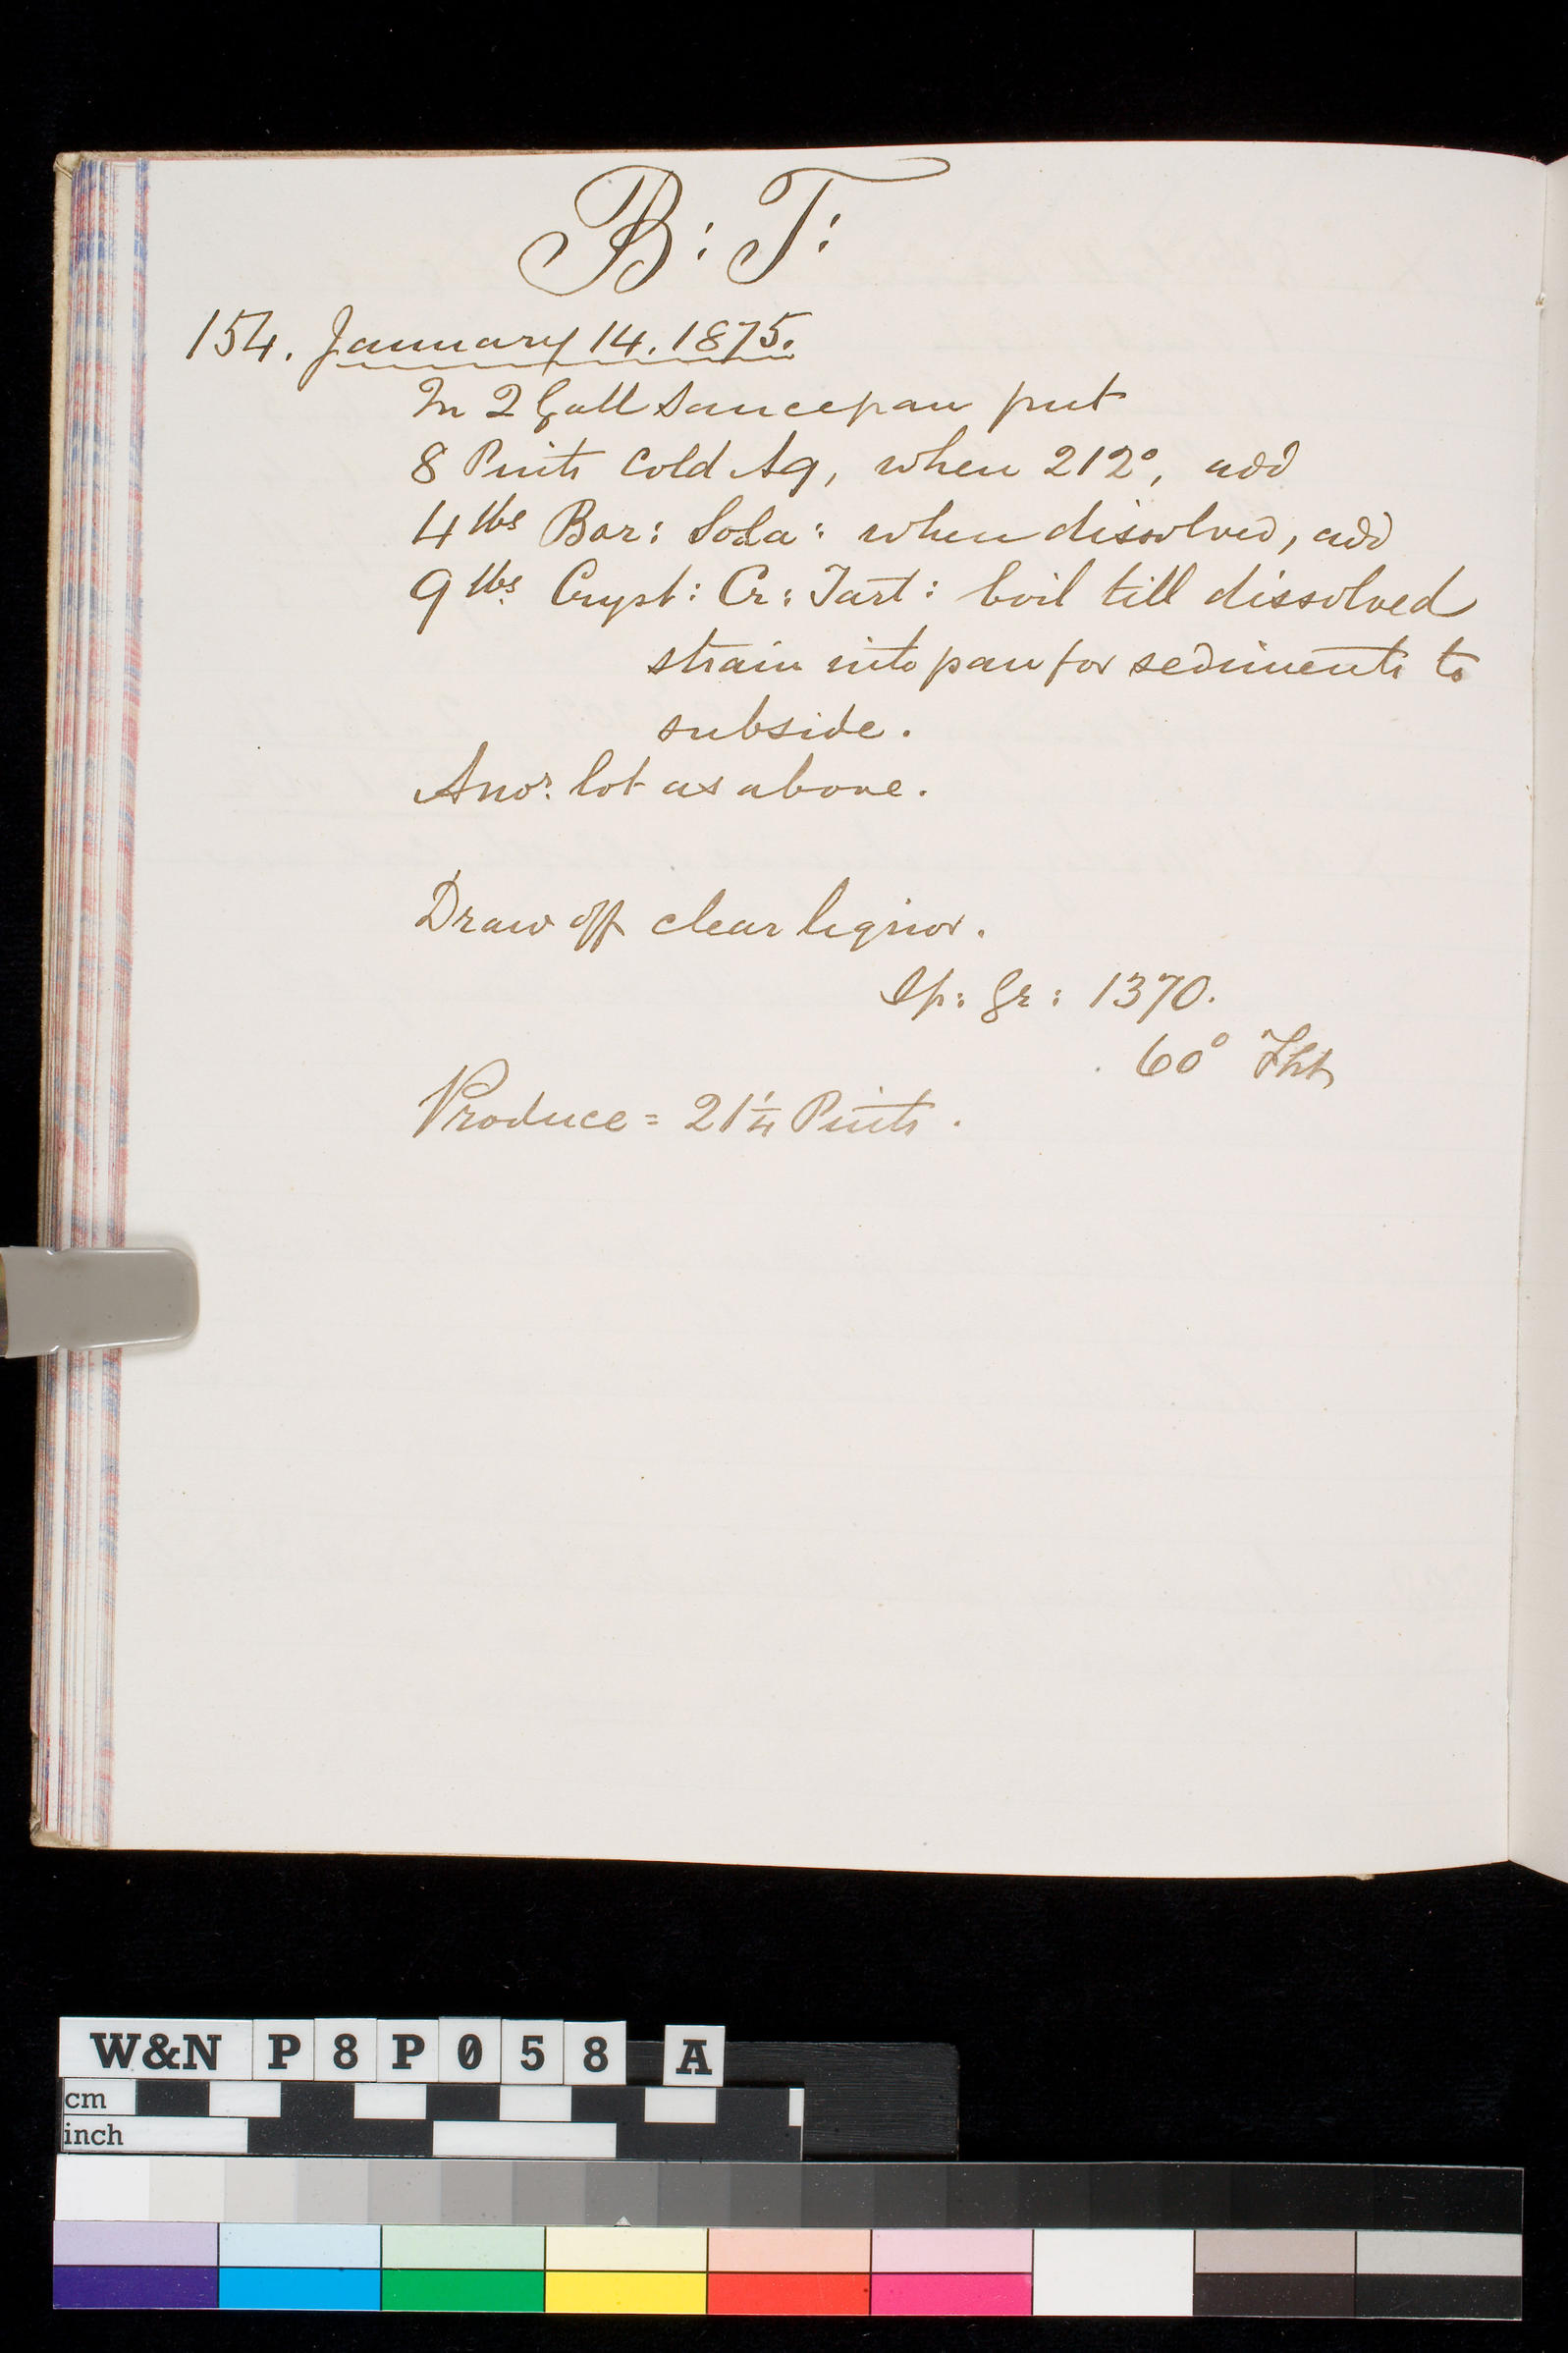 B: T:
154. January 14. 1875.
In 2 Gall Saucepan put
8 Pints Cold Aq, when 212°, add
4 lbs Bor: Soda: when dissolved, add
9 lbs Cryst: Cr: Tart: boil till dissolved
strain into pan for sediments to
subside.
Anor: lot as above.
Draw off clear liquor.
Sp: gr: 1370.
60° Fht
Produce = 21 1/4 Pints.
W&N P8P058 A
cm
inch